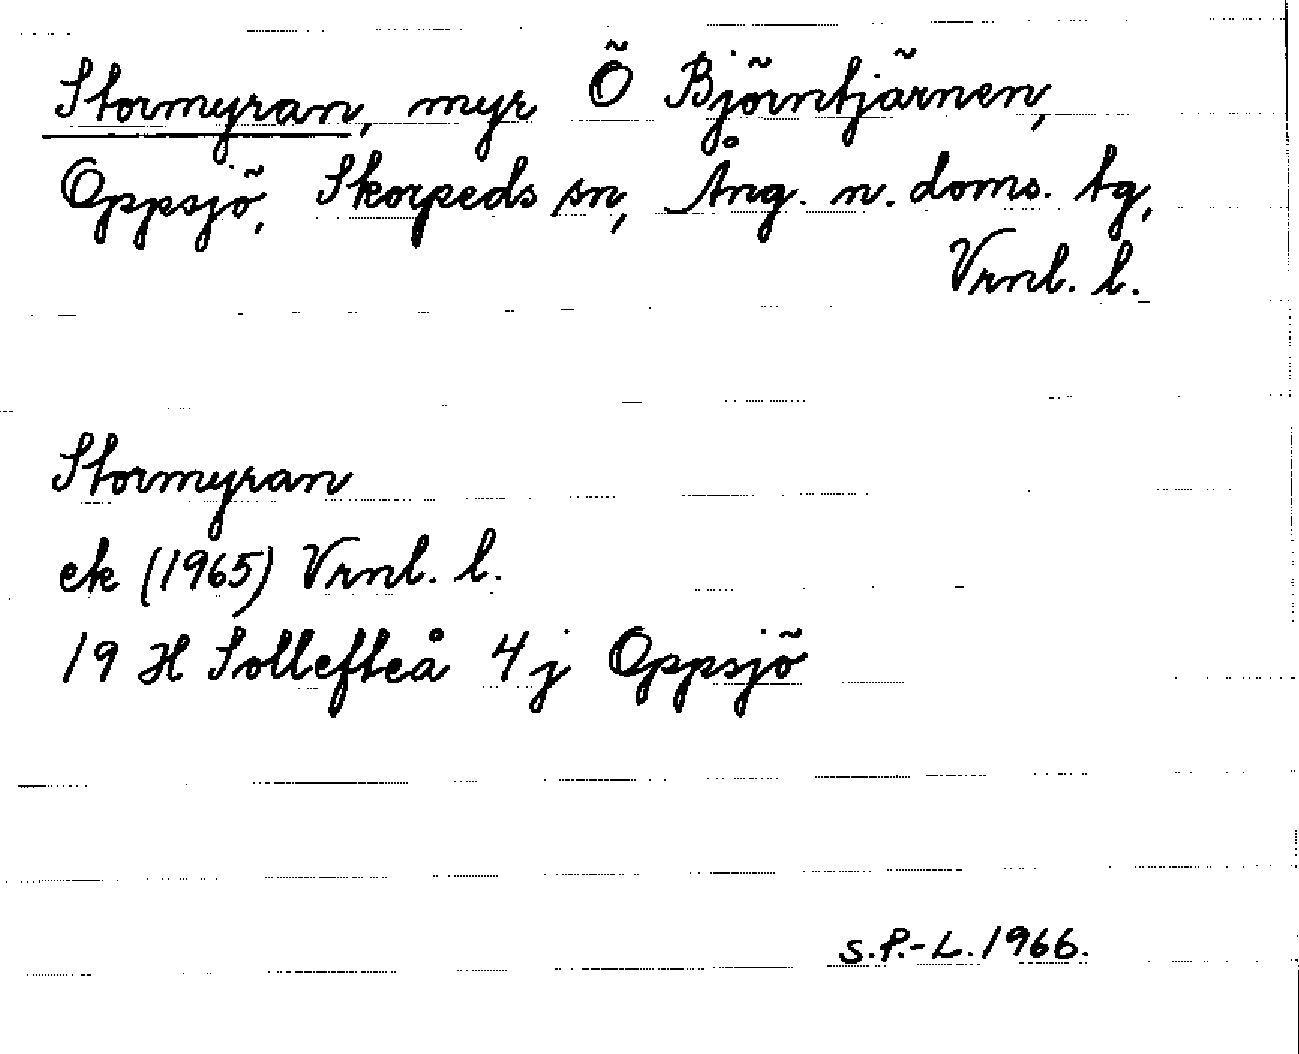 Stormyran, myr Ö Björntjärnen,
Oppsjö, Skorpeds sn, Ång. n. doms. tg,
Vrnl. l.
Stormyran
ek (1965) Vrnl. l.
19 H Sollefteå 4 j Oppsjö
S.P.-L. 1966.